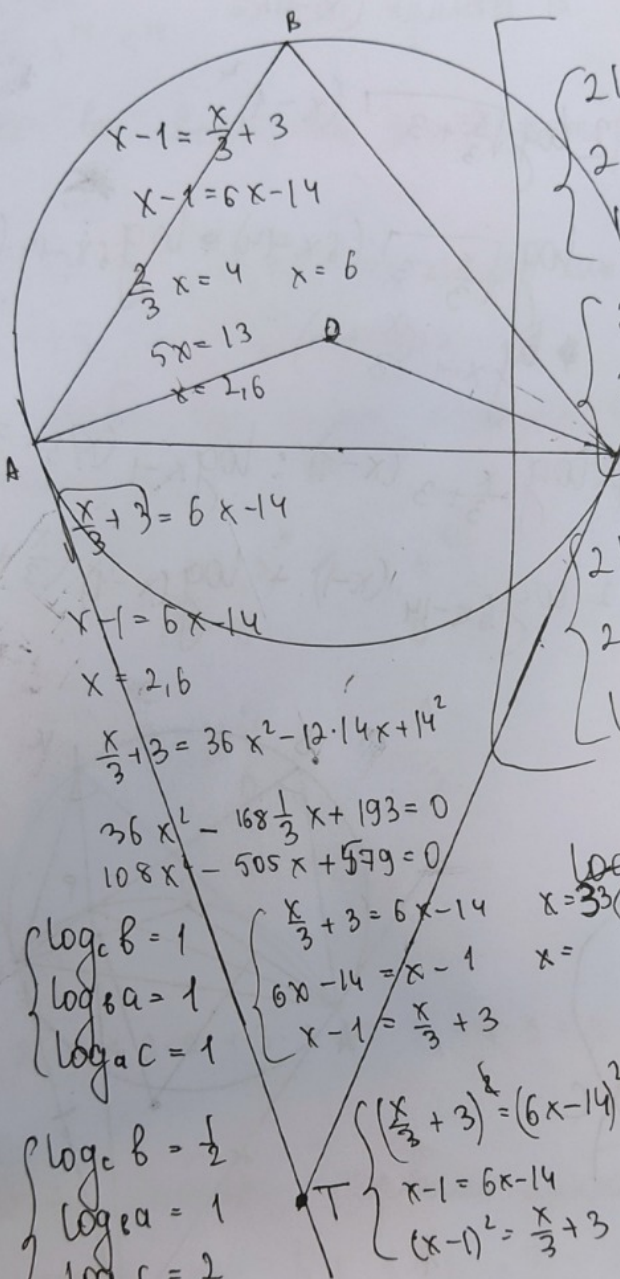 B
x-1 = x/3 + 3
x-1 = 6x-14
2/3 x = 4 x = 6
5x = 13
x = 2,6
O
A
x/3 + 3 = 6x-14
x-1 = 6x-14
x = 2,6
x/3 + 3 = 36x² - 12·14x + 14²
36x² - 168 1/3 x + 193 = 0
108x² - 505x + 579 = 0
log_c b = 1
log_b a = 1
log_a c = 1
x/3 + 3 = 6x-14
6x-14 = x-1
x-1 = x/3 + 3
x=33
x=
log_c b = 1/2
log_b a = 1
log_a c = 2
T
(x/3 + 3)² = (6x-14)²
x-1 = 6x-14
(x-1)² = x/3 + 3
2
2
2
2